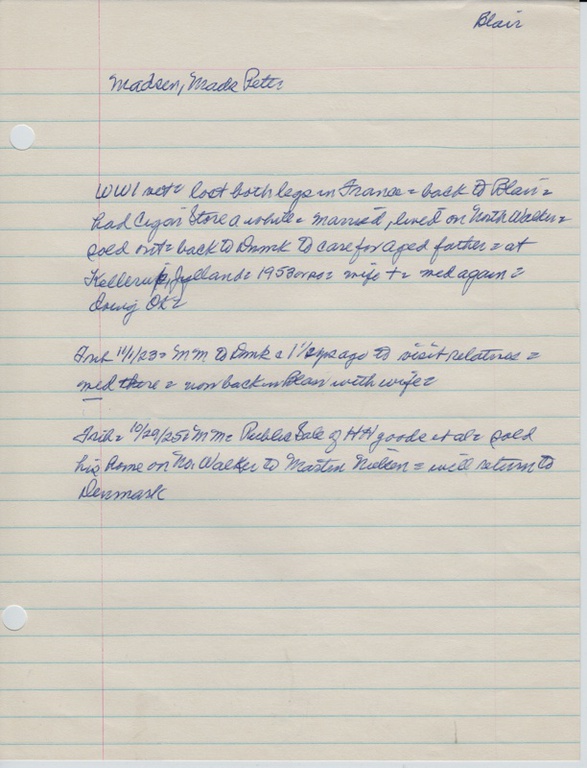 Blair
Madsen, Mads Peter
WW1 vet = lost both legs in France = back to Blair =
had Cigar Store a while = married, lived on North Walker =
sold out = back to Dnmk to care for aged father = at
Jylland = 1953 or so = wife + = med again =
doing OK =
Trib 11/1/23 = MM to Dnmk = 1 1/2 yrs ago to visit relatives =
med there = now back in Blair with wife =
Trib = 10/29/25 = MM = Public Sale of HH goods et al = sold
his home on No. Walker to Marten Nielsen = will return to
Denmark